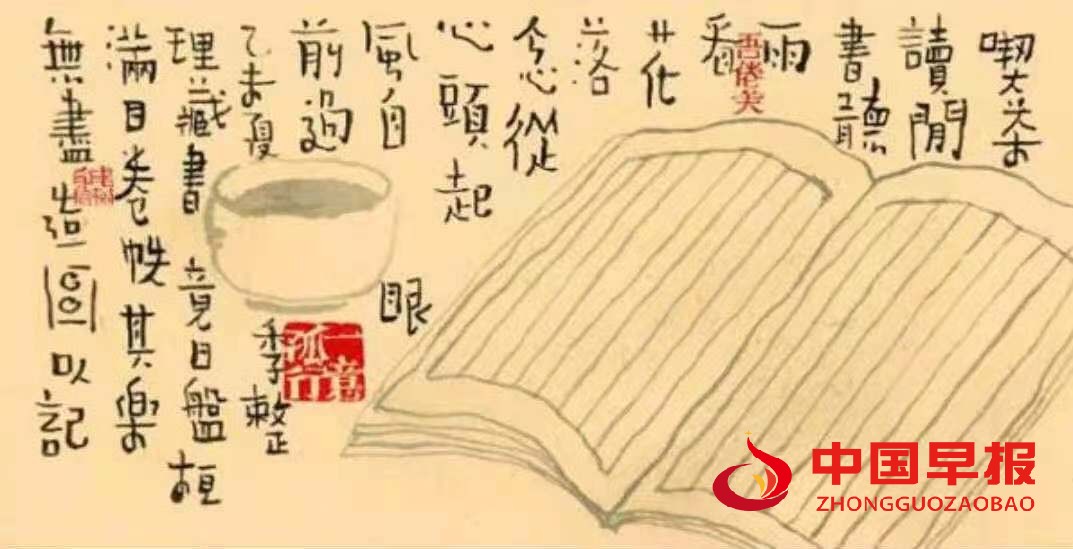 喫茶
讀閒
書聽
雨
看
花
落
念從
心頭起
風自眼
前過
乙未夏季整
理藏書竟日盤桓
滿目卷帙其樂
無盡造以記
一意孤行
中国早报
ZHONGGUOZAOBAO